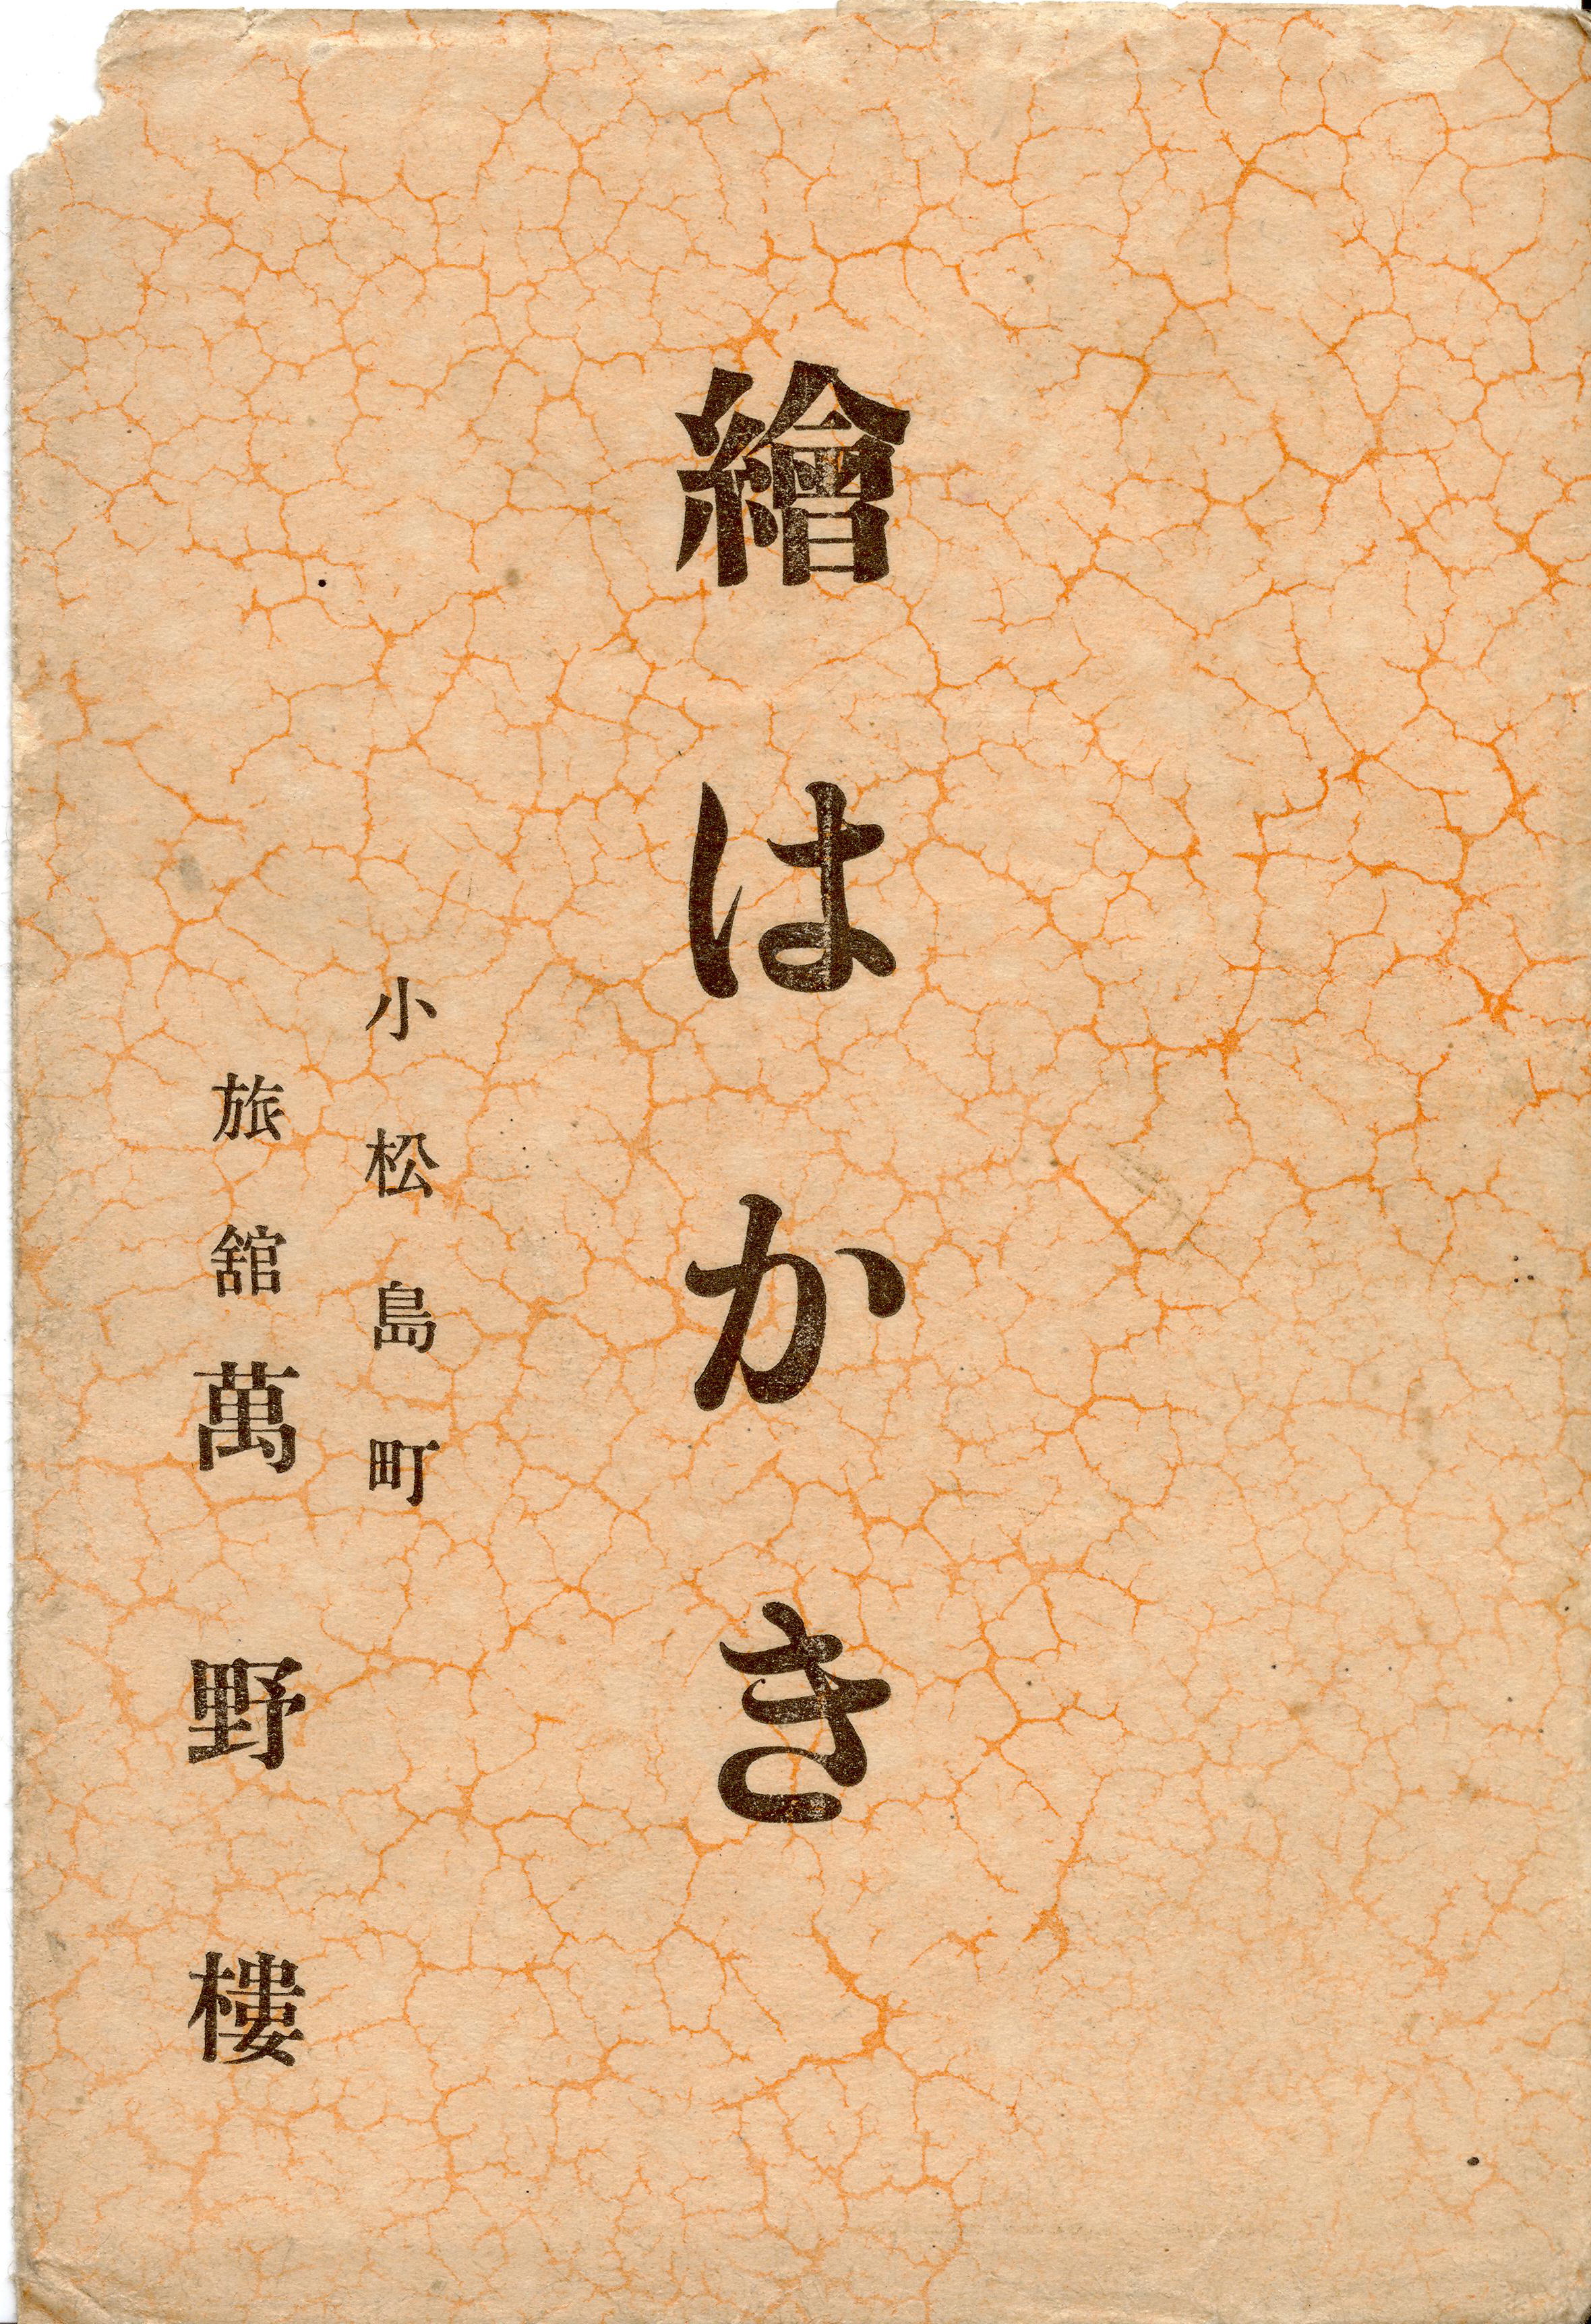 繪はかき
小松島町
旅舘萬野樓